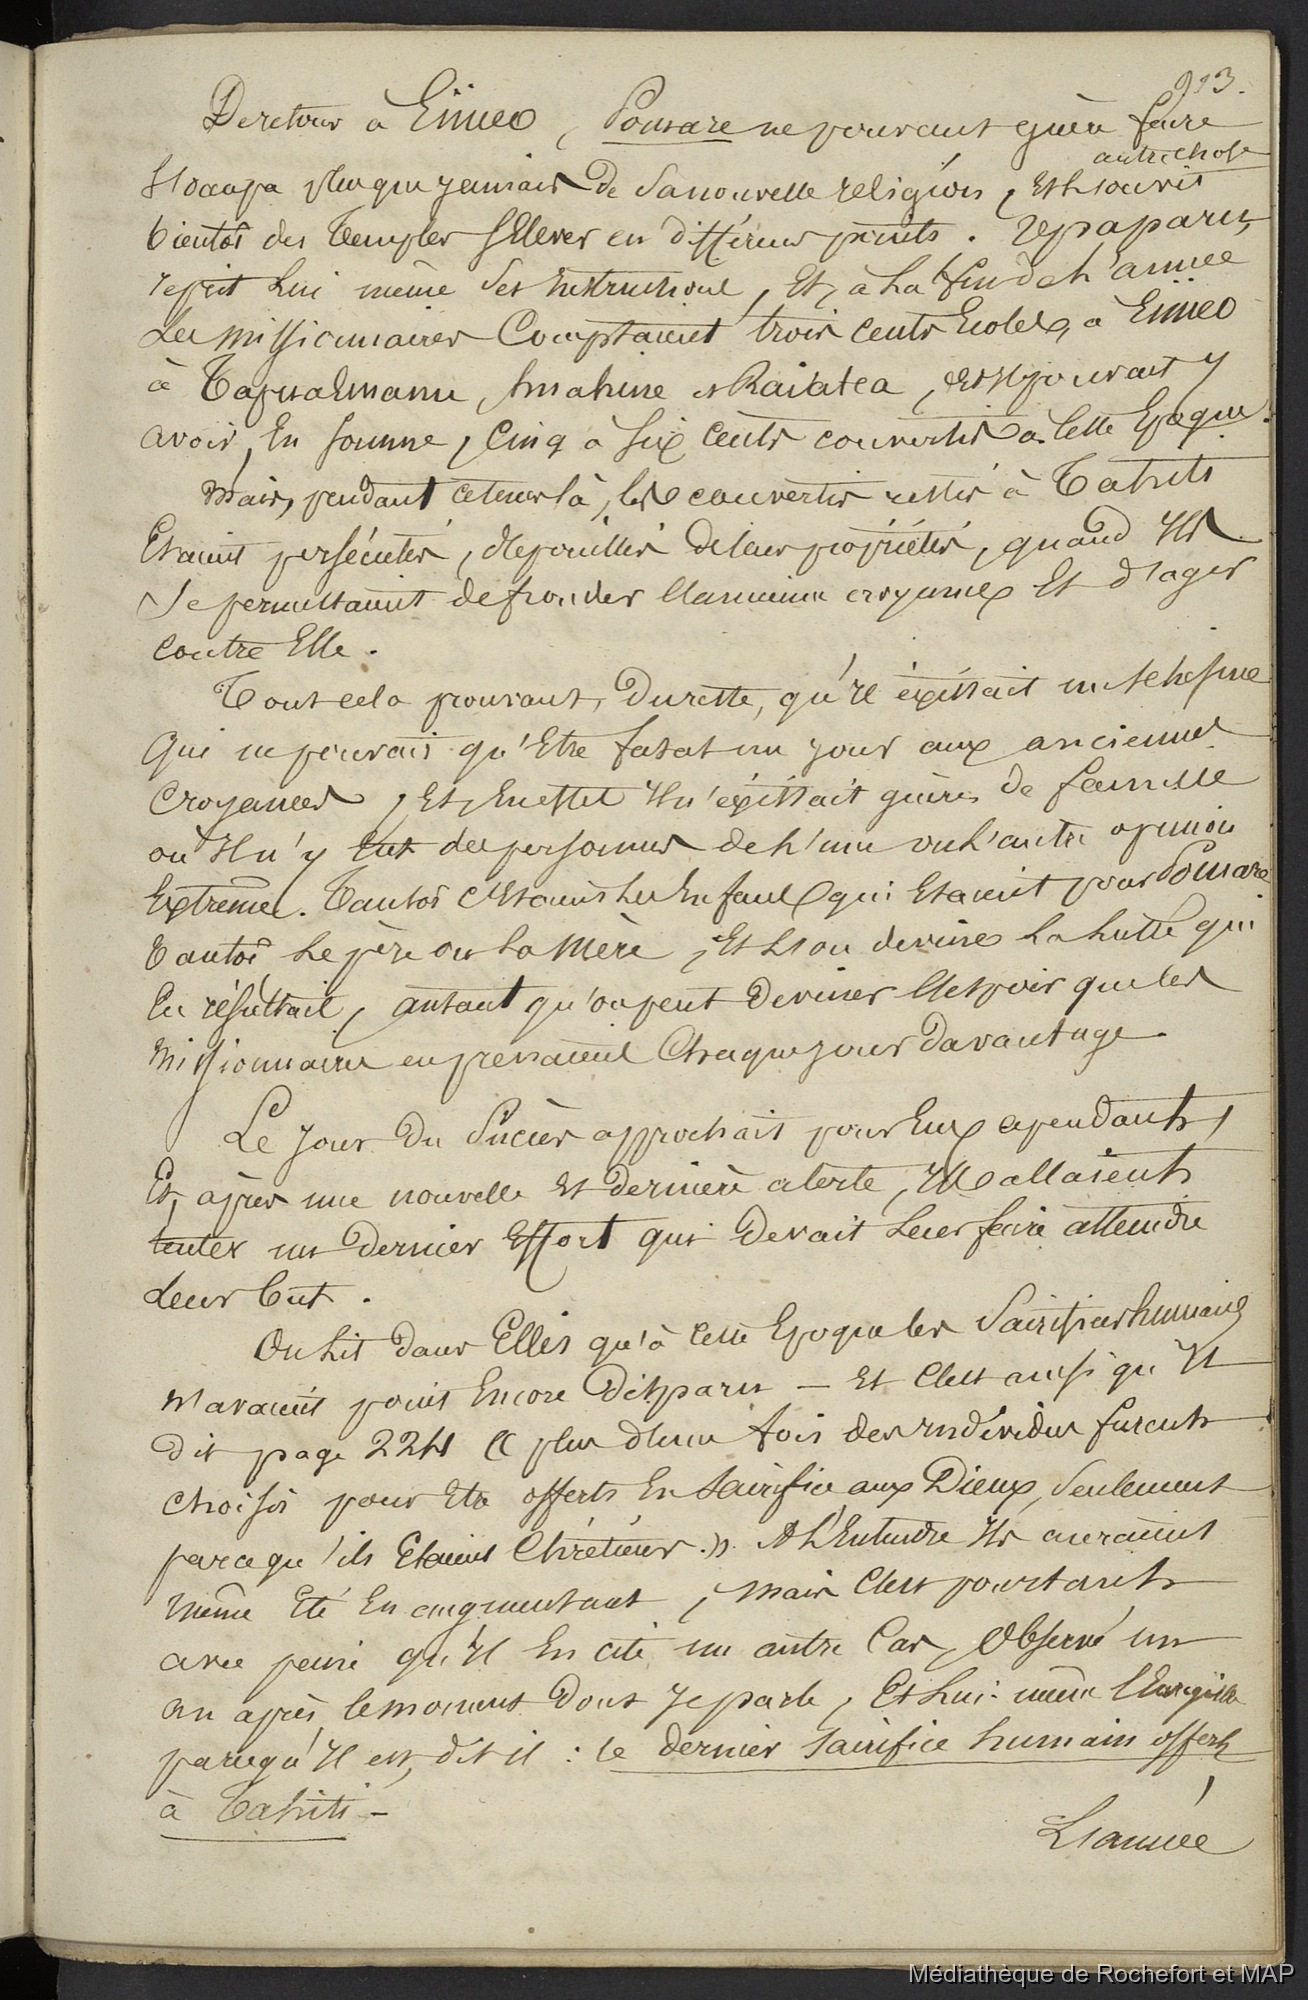 913.
De retour à Eïmeo, Pomare ne pouvant guère faire
autre chose
s'occupa plus que jamais de sa nouvelle religion, et l'on vit
bientôt des temples s'élever en différens points. Il
reprit lui même ses instructions, et, à la fin de l'année
les missionnaires comptaient trois cents Ecoles, à Eïmeo
à Tapuaemanu, huahine et Raiatea, et il pouvait y
avoir, en somme, cinq à six cents convertis à cette Epoque.
Mais, pendant ce tems là, les convertis restés à Tahiti
Etaient persécutés, dépouillés de leurs propriétés, quand Ils
se permettaient de fronder l'ancienne croyance et d'agir
contre Elle.
Tout cela prouvant, du reste, qu'il éxistait un schisme
qui ne pouvait qu'Etre fatal un jour aux anciennes
Croyances, Et, En effet Il n'éxistait guères de famille
où Il n'y eut des personnes de l'une ou l'autre opinion
Extrême. Tantôt c'Etaient les Enfans qui Etaient pour Pomare
tantôt le père ou la Mère, Et l'on devine la lutte qui
En résultait, autant qu'on peut deviner l'Espoir que les
Missionnaires en prenaient Chaque jour davantage.
Le jour du Succès approchait pour Eux cependant,
Et, après une nouvelle et dernière alerte, Ils allaient
tenter un dernier Effort qui devait leur faire atteindre
leur but.
On lit dans Ellis qu'à cette Epoque les Sacrifices humains
n'avaient point Encore disparu — Et c'Est ainsi qu'Il
dit page 224 « plus d'une fois des individus furent
choisis pour Etre offerts En Sacrifice aux Dieux, seulement
parce qu'ils Etaient Chrétiens. » A l'Entendre Ils auraient
même Eté En augmentant, mais C'Est pourtant
avec peine qu'Il En cite un autre Cas, Observé un
an après le moment dont Je parle, Et lui-même
parcequ'Il est, dit il : le dernier sacrifice humain offert
à Tahiti —
L'année
Médiathèque de Rochefort et MAP